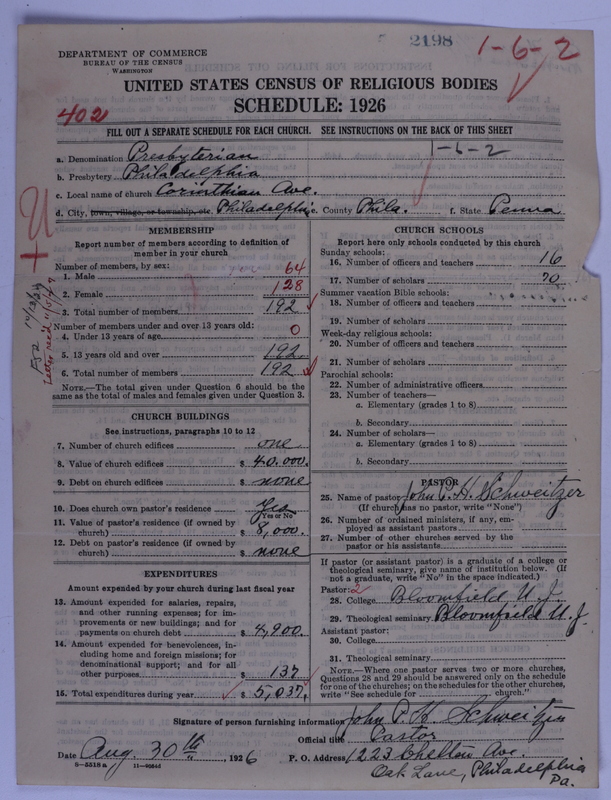 2198
1-6-2
DEPARTMENT OF COMMERCE
BUREAU OF THE CENSUS
WASHINGTON
UNITED STATES CENSUS OF RELIGIOUS BODIES
SCHEDULE: 1926
402
FILL OUT A SEPARATE SCHEDULE FOR EACH CHURCH. SEE INSTRUCTIONS ON THE BACK OF THIS SHEET
1-6-2
a. Denomination Presbyterian
b. Presbytery Philadelphia
c. Local name of church Corinthian Ave.
d. City, town, village, or township, etc Philadelphia e. County Phila. f. State Penna
+U
MEMBERSHIP
Report number of members according to definition of
member in your church
Number of members, by sex:
1. Male 64
2. Female 128
3. Total number of members 192
Number of members under and over 13 years old:
4. Under 13 years of age 0
5. 13 years old and over 192
6. Total number of members 192
NOTE.—The total given under Question 6 should be the
same as the total of males and females given under Question 3.
CHURCH BUILDINGS
See instructions, paragraphs 10 to 12
7. Number of church edifices one
8. Value of church edifices $ 40.000.
9. Debt on church edifices $ none
10. Does church own pastor's residence Yes
Yes or No
11. Value of pastor's residence (if owned by
church) $ 8,000.
12. Debt on pastor's residence (if owned by
church) $ none
EXPENDITURES
Amount expended by your church during last fiscal year
13. Amount expended for salaries, repairs,
and other running expenses; for im-
provements or new buildings; and for
payments on church debt $ 4,900.
14. Amount expended for benevolences, in-
cluding home and foreign missions; for
denominational support; and for all
other purposes $ 137
15. Total expenditures during year $ 5,037.
CHURCH SCHOOLS
Report here only schools conducted by this church
Sunday schools:
16. Number of officers and teachers 16
17. Number of scholars 70
Summer vacation Bible schools:
18. Number of officers and teachers
19. Number of scholars
Week-day religious schools:
20. Number of officers and teachers
21. Number of scholars
Parochial schools:
22. Number of administrative officers
23. Number of teachers—
a. Elementary (grades 1 to 8)
b. Secondary
24. Number of scholars—
a. Elementary (grades 1 to 8)
b. Secondary
PASTOR
25. Name of pastor John P. H. Schweitzer
(If church has no pastor, write "None")
26. Number of ordained ministers, if any, em-
ployed as assistant pastors
27. Number of other churches served by the
pastor or his assistants
If pastor (or assistant pastor) is a graduate of a college or
theological seminary, give name of institution below. (If
not a graduate, write "No" in the space indicated.)
Pastor: 2
28. College Bloomfield N. J.
29. Theological seminary Bloomfield N. J.
Assistant pastor:
30. College
31. Theological seminary
NOTE.—Where one pastor serves two or more churches,
Questions 28 and 29 should be answered only on the schedule
for one of the churches; on the schedules for the other churches,
write "See schedule for church."
Signature of person furnishing information John P. H. Schweitzer
Official title Pastor
Date Aug. 30th, 1926 P. O. Address 1223 Chelten Ave.
Oak Lane, Philadelphia
Pa.